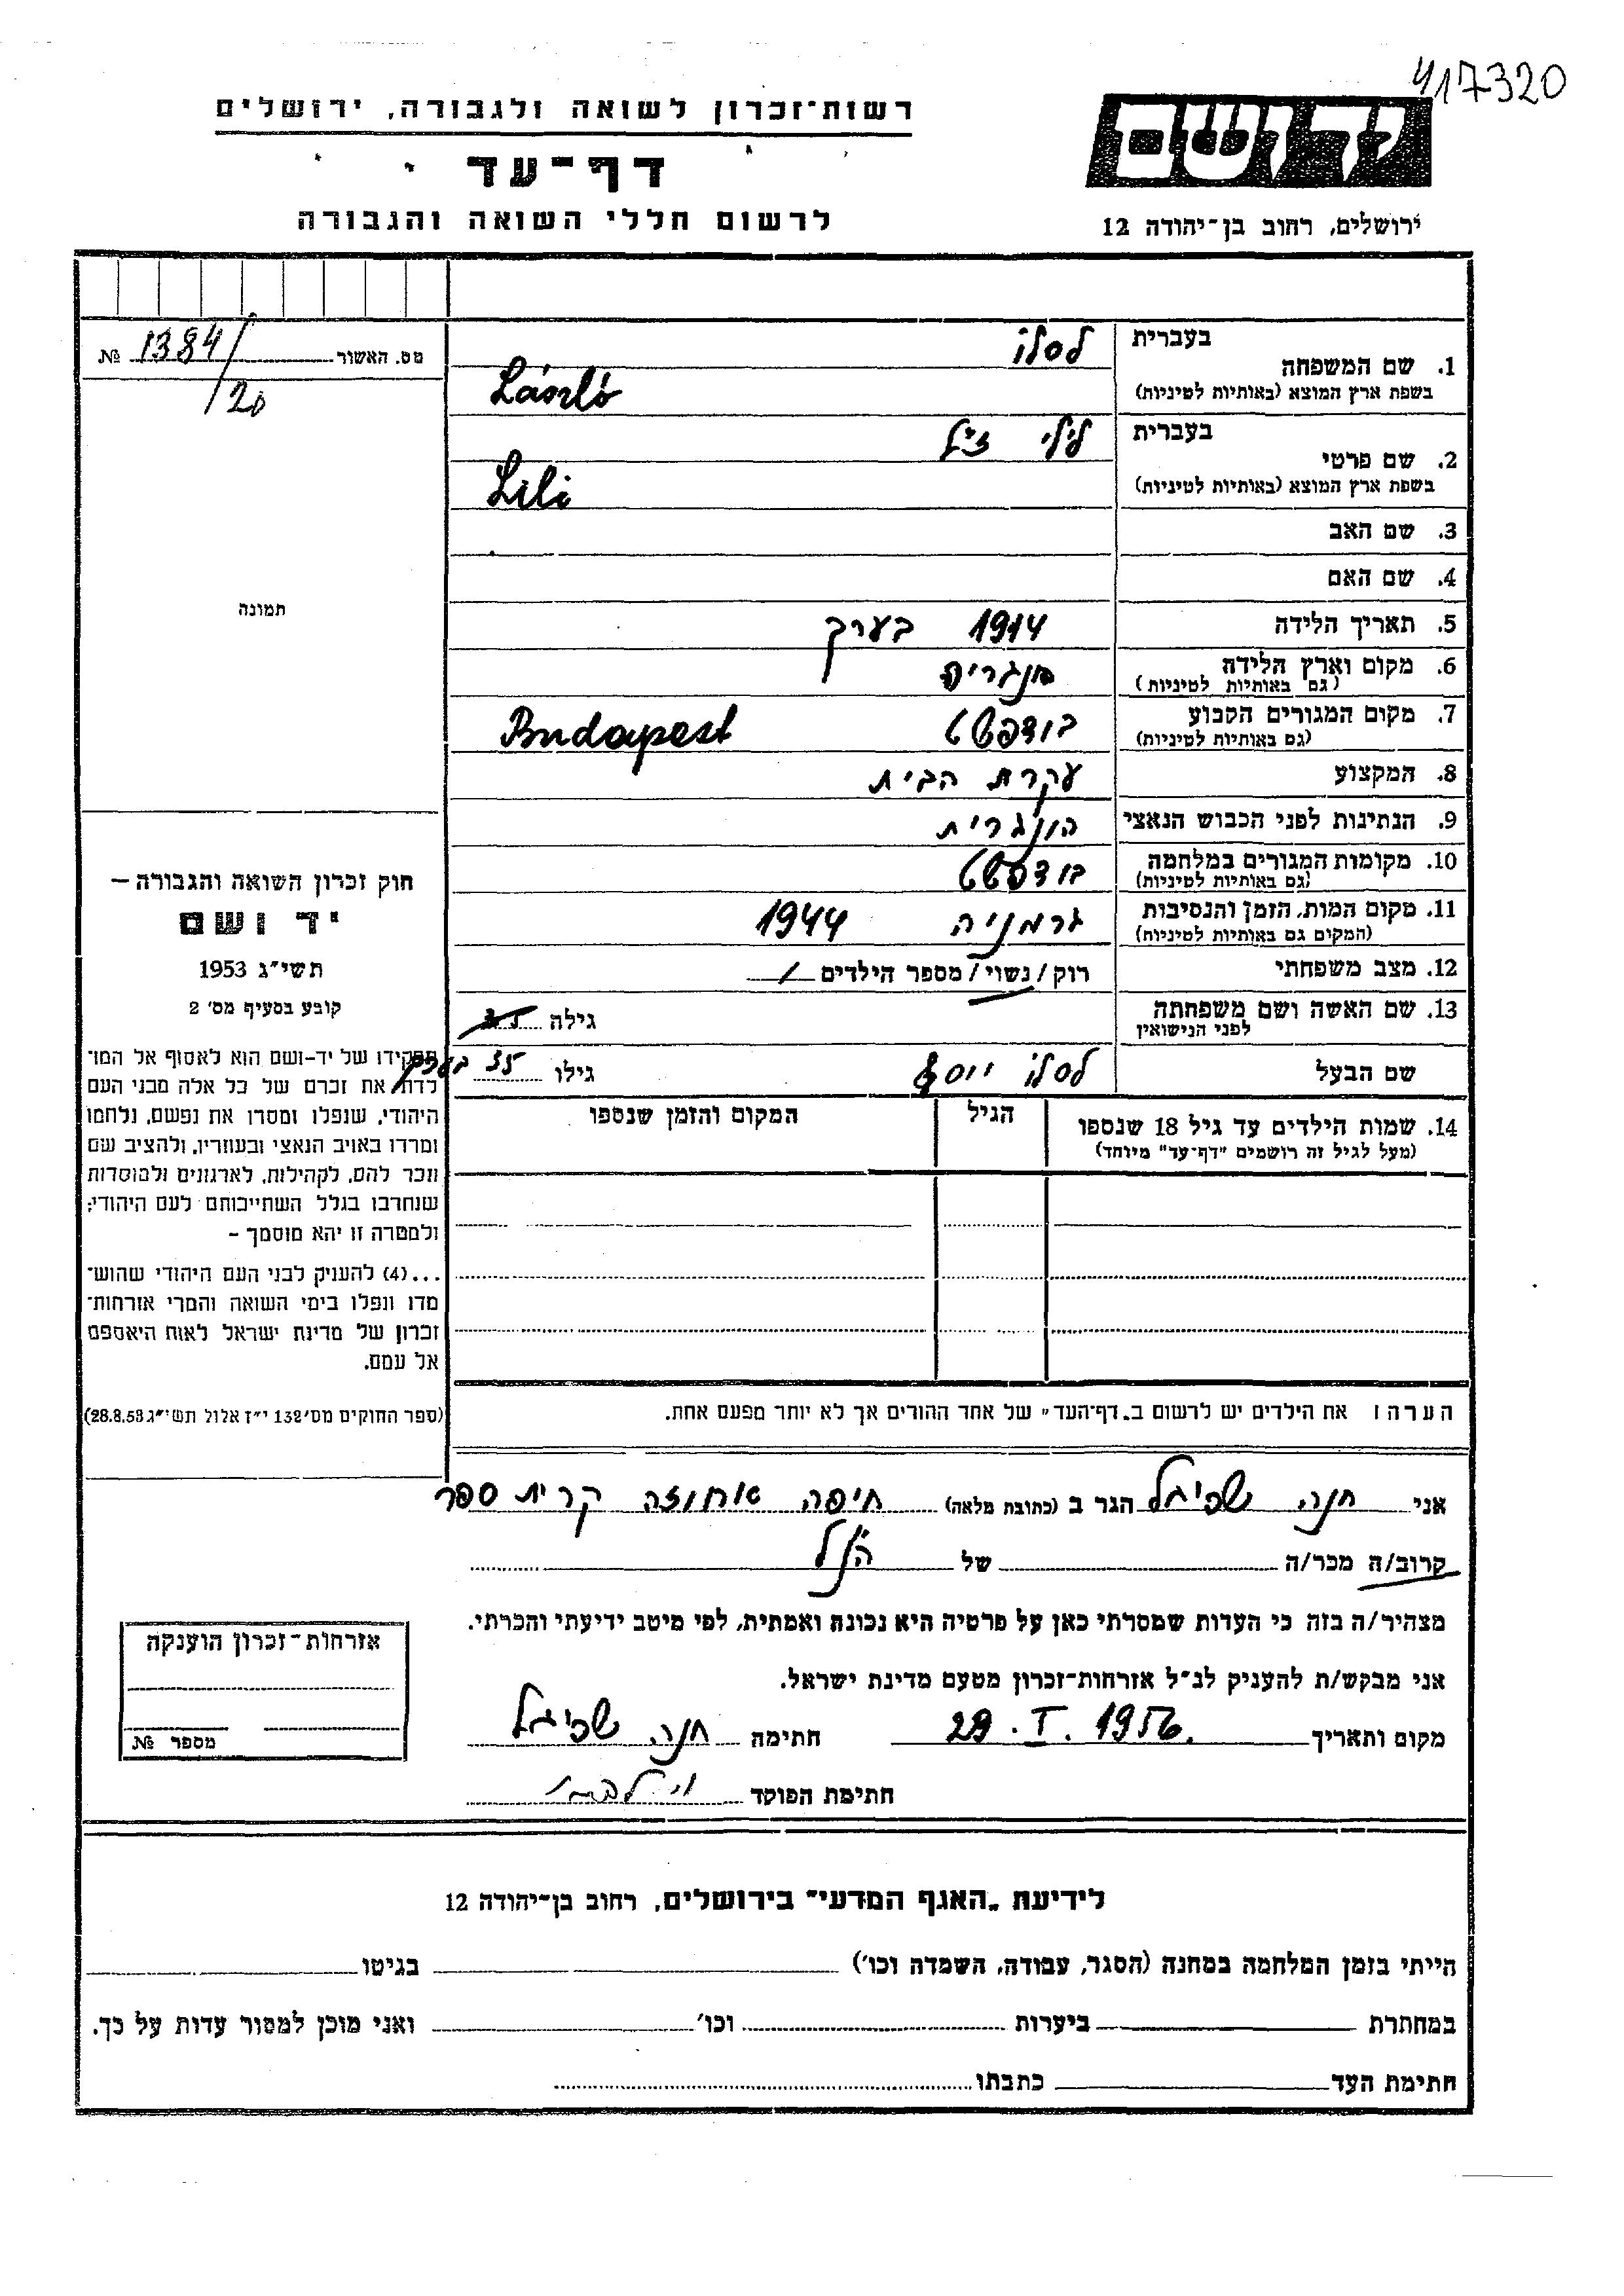 417320
רשות-זכרון לשואה ולגבורה, ירושלים
ידושם
דף-עד
לרשום חללי השואה והגבורה
ירושלים, רחוב בן-יהודה 12
מס. האשור 1384/20 №
1. שם המשפחה
בעברית לסלו
בשפת ארץ המוצא (באותיות לטיניות) László
2. שם פרטי
בעברית לילי ז"ל
בשפת ארץ המוצא (באותיות לטיניות) Lili
3. שם האב
4. שם האם
5. תאריך הלידה 1914 בערך
6. מקום וארץ הלידה הונגריה
(גם באותיות לטיניות)
7. מקום המגורים הקבוע בודפשט Budapest
(גם באותיות לטיניות)
8. המקצוע עקרת הבית
9. הנתינות לפני הכבוש הנאצי הונגרית
10. מקומות המגורים במלחמה בודפשט
(גם באותיות לטיניות)
11. מקום המות, הזמן והנסיבות גרמניה 1944
(המקום גם באותיות לטיניות)
12. מצב משפחתי רוק/נשוי/ מספר הילדים /
13. שם האשה ושם משפחתה
לפני הנישואין גילה
שם הבעל לסלו יוסף גילו 35 בערך
14. שמות הילדים עד גיל 18 שנספו
(מעל לגיל זה רושמים "דף-עד" מיוחד)
הגיל
המקום והזמן שנספו
הערה: את הילדים יש לרשום ב„דף-העד" של אחד ההורים אך לא יותר מפעם אחת.
תמונה
חוק זכרון השואה והגבורה –
יד ושם
תשי"ג 1953
קובע בסעיף מס' 2
תפקידו של יד-ושם הוא לאסוף אל המו-
לדת את זכרם של כל אלה מבני העם
היהודי, שנפלו ומסרו את נפשם, נלחמו
ומרדו באויב הנאצי ובעוזריו, ולהציב שם
וזכר להם, לקהילות, לארגונים ולמוסדות
שנחרבו בגלל השתייכותם לעם היהודי;
ולמטרה זו יהא מוסמך –
...(4) להעניק לבני העם היהודי שהוש-
מדו ונפלו בימי השואה והמרי אזרחות-
זכרון של מדינת ישראל לאות היאספם
אל עמם.
(ספר החוקים מס' 132 י"ז אלול תשי"ג 28.8.53)
אני חנה שפיגל הגר ב (כתובת מלאה) חיפה אחוזה קרית ספר
קרוב/ה מכר/ה של הנ"ל
מצהיר/ה בזה כי העדות שמסרתי כאן על פרטיה היא נכונה ואמתית, לפי מיטב ידיעתי והכרתי.
אני מבקש/ת להעניק לנ"ל אזרחות-זכרון מטעם מדינת ישראל.
מקום ותאריך 29. I. 1956. חתימה חנה שפיגל
חתימת הפוקד
אזרחות-זכרון הוענקה
מספר №
לידיעת „האגף המדעי" בירושלים, רחוב בן-יהודה 12
הייתי בזמן המלחמה במחנה (הסגר, עבודה, השמדה וכו') בגיטו
במחתרת ביערות וכו' ואני מוכן למסור עדות על כך.
חתימת העד כתבתו